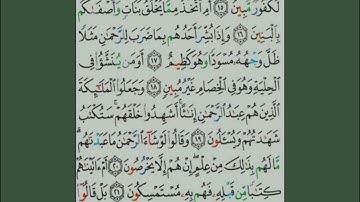 لَكَفُورٌ مُّبِينٌ ١٥ أَمِ ٱتَّخَذَ مِمَّا يَخْلُقُ بَنَاتٍ وَأَصْفَىٰكُم
بِٱلْبَنِينَ ١٦ وَإِذَا بُشِّرَ أَحَدُهُم بِمَا ضَرَبَ لِلرَّحْمَٰنِ مَثَلًا
ظَلَّ وَجْهُهُۥ مُسْوَدًّا وَهُوَ كَظِيمٌ ١٧ أَوَمَن يُنَشَّؤُا۟ فِى
ٱلْحِلْيَةِ وَهُوَ فِى ٱلْخِصَامِ غَيْرُ مُبِينٍ ١٨ وَجَعَلُوا۟ ٱلْمَلَٰٓئِكَةَ
ٱلَّذِينَ هُمْ عِبَٰدُ ٱلرَّحْمَٰنِ إِنَٰثًا ۚ أَشَهِدُوا۟ خَلْقَهُمْ ۚ سَتُكْتَبُ
شَهَٰدَتُهُمْ وَيُسْـَٔلُونَ ١٩ وَقَالُوا۟ لَوْ شَآءَ ٱلرَّحْمَٰنُ مَا عَبَدْنَٰهُم ۗ
مَّا لَهُم بِذَٰلِكَ مِنْ عِلْمٍ ۖ إِنْ هُمْ إِلَّا يَخْرُصُونَ ٢٠ أَمْ ءَاتَيْنَٰهُمْ
كِتَٰبًا مِّن قَبْلِهِۦ فَهُم بِهِۦ مُسْتَمْسِكُونَ ٢١ بَلْ قَالُوٓا۟